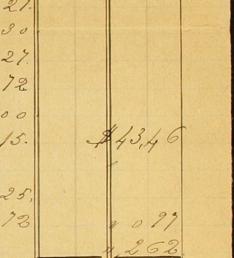 27.
30
27.
72
00
15. $43,46
25,
72 " 0 97
" 2 62